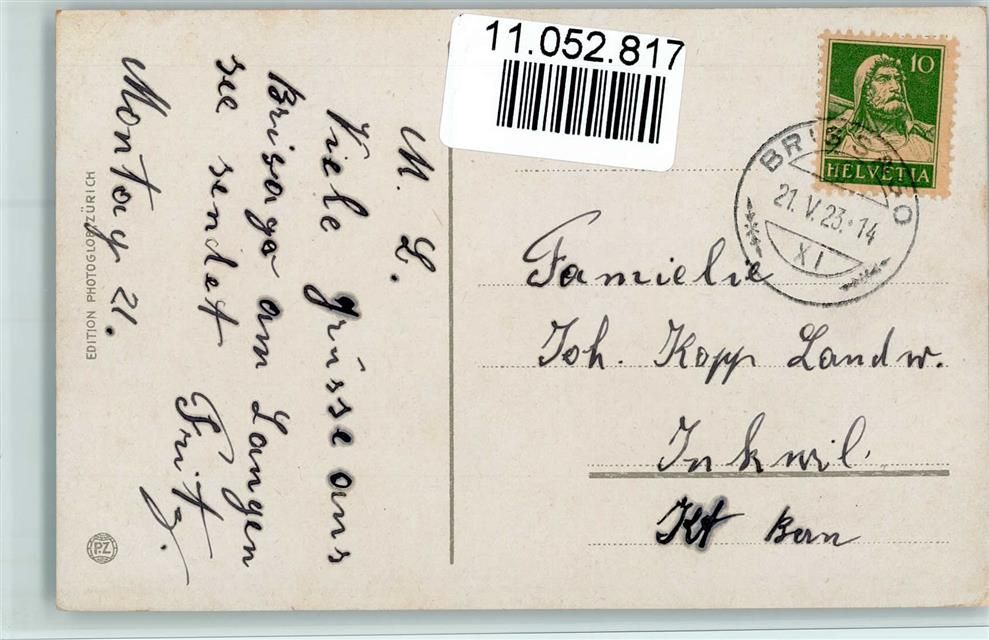 11.052.817
10
HELVETIA
BRISSAGO
21.V.23.-14
XI
M. L.
Viele grüsse aus
Brisago am Langen
see sendet
Fritz.
Montay 21.
Famielie
Joh. Kopp Landw.
Inkwil.
Kt Bern
EDITION PHOTOGLOB ZÜRICH
P.Z